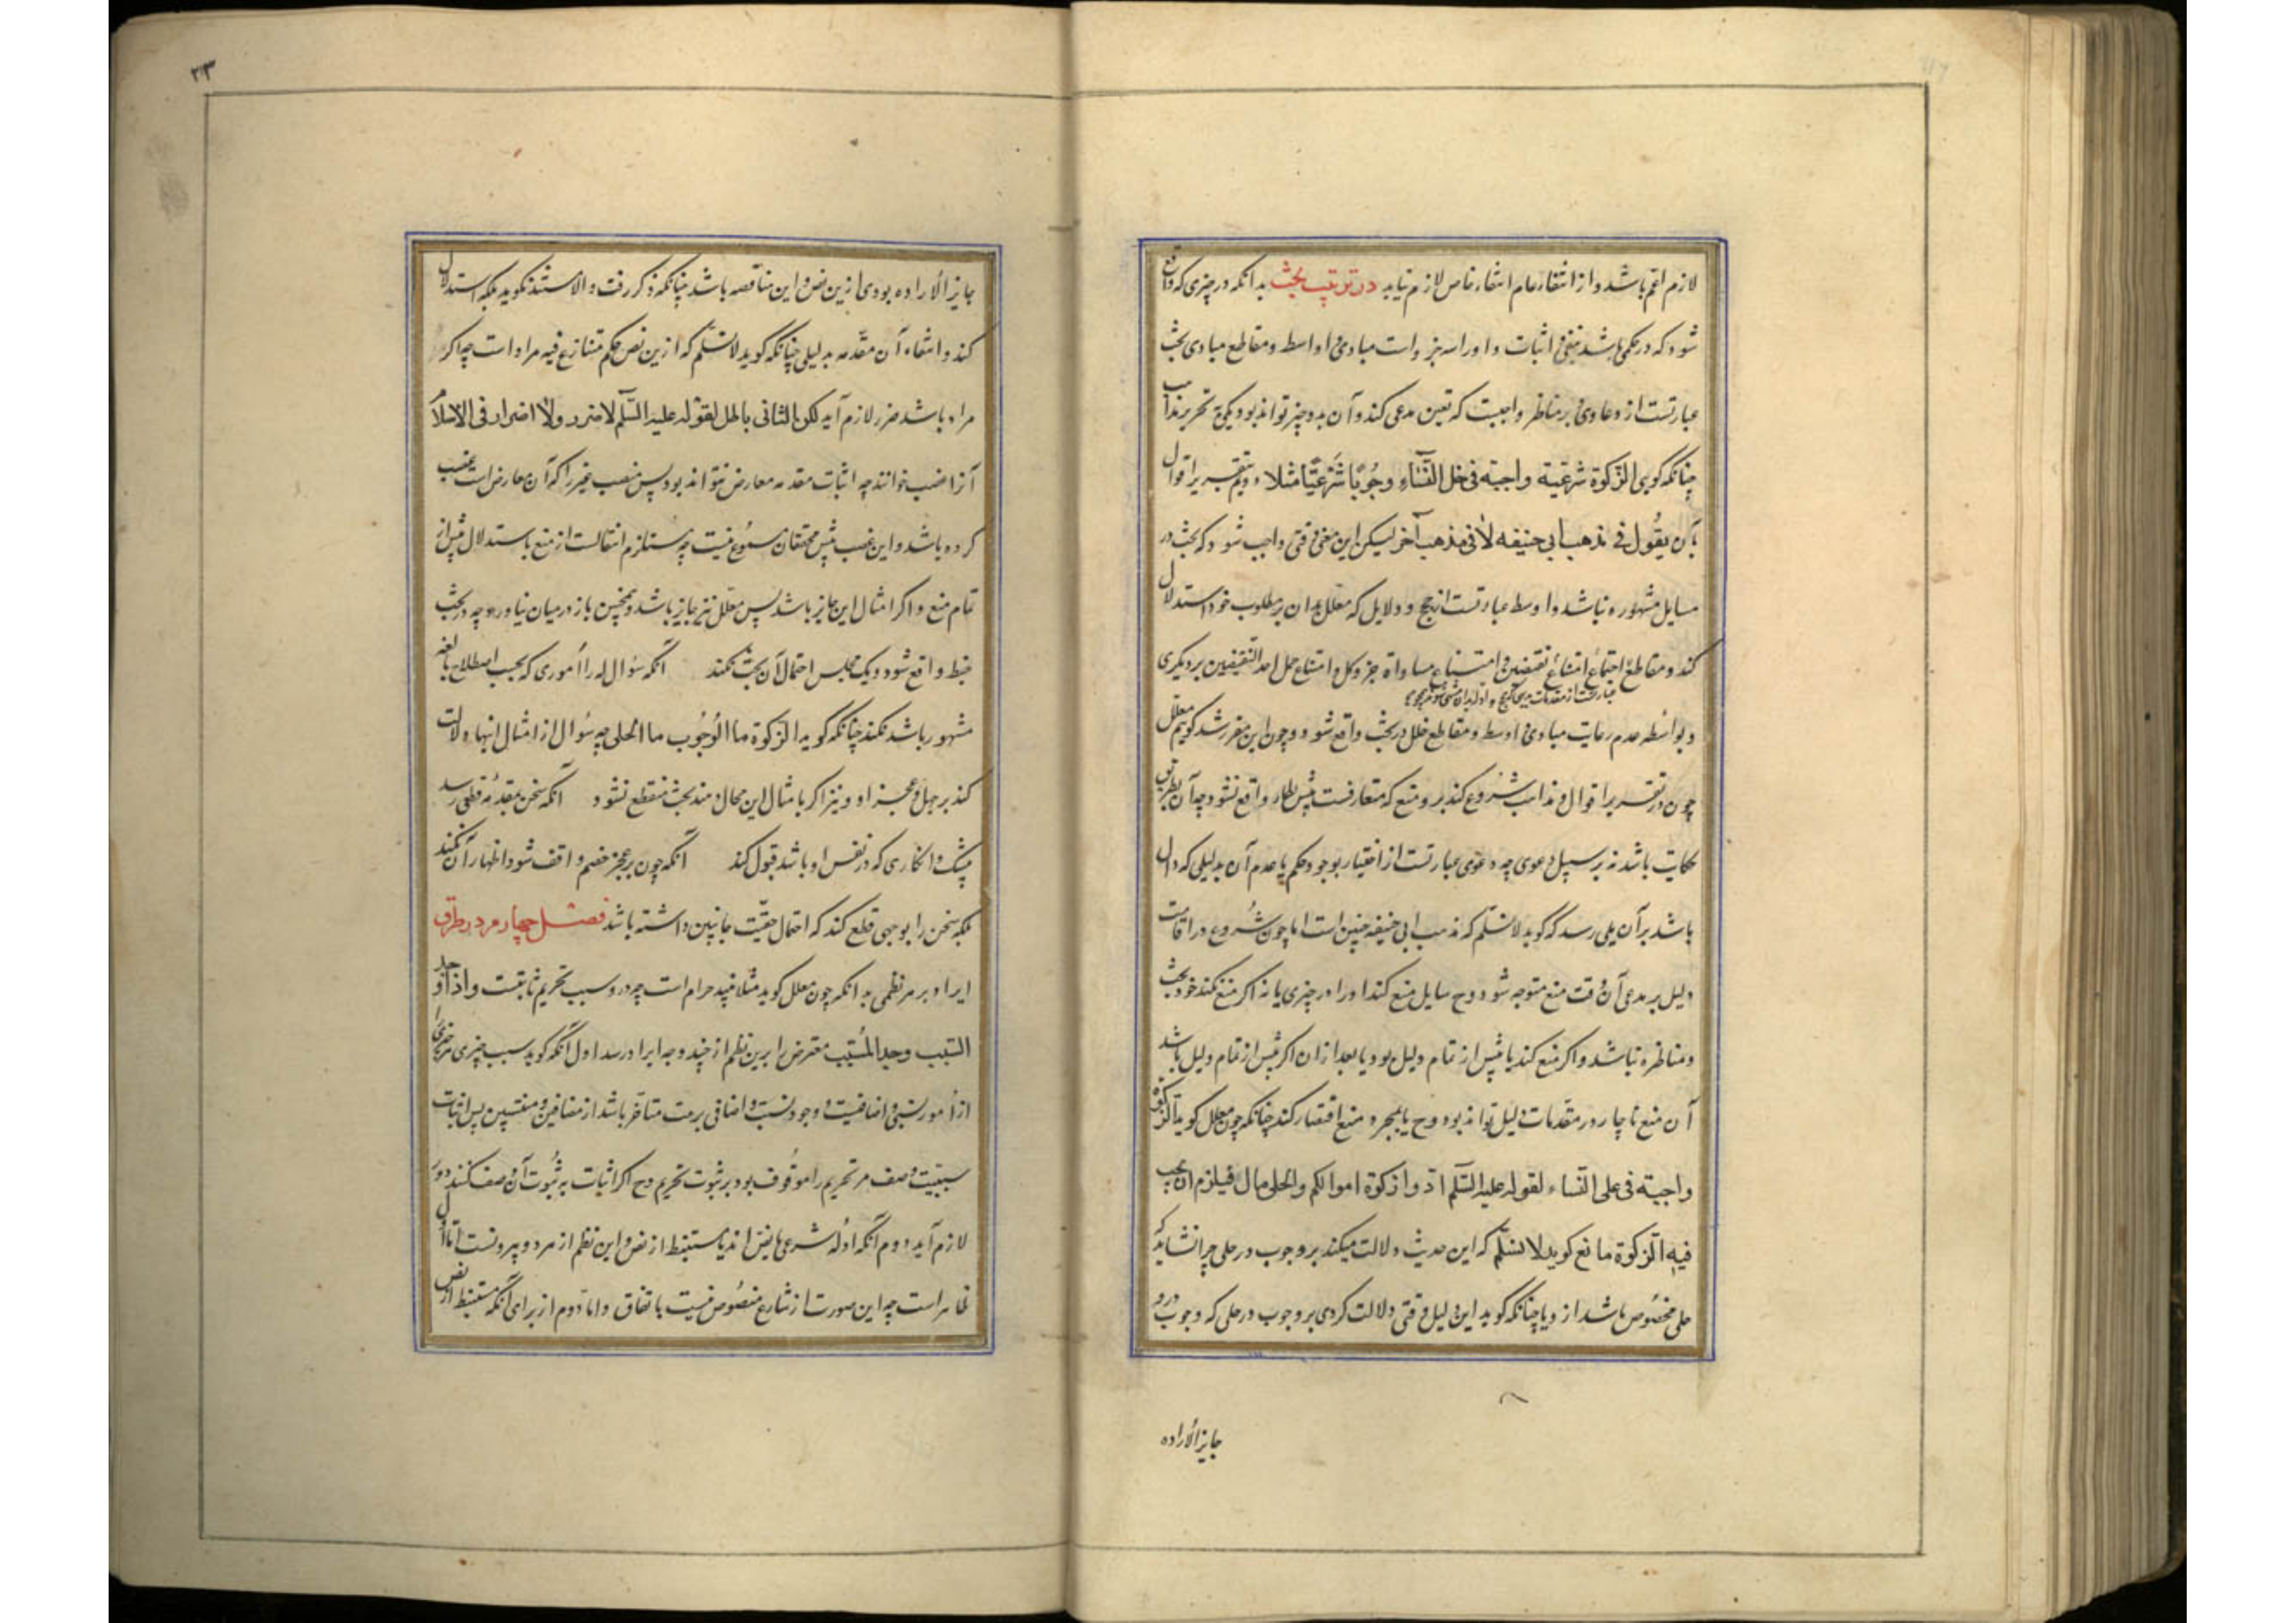 لازم اعم باشد و از انتفاء عام انتفاء خاص لازم نیاید در ترتیب بحث بدانکه در چیزی که واقع
شود که در حکمی باشد بنفی و اثبات و او را سه جزو است مبادی و اواسط و مقاطع مبادی بحث
عبارتست از دعاوی و بر مناظر واجبست که تعین مدعی کند و آن بدو چیز تواند بود یکی تحریر مذاهب
چنانکه کوی الزکوة شرعیة واجبة فی حلی النساء وجوبا شرعیا مثلا دویم تقریر اقوال
بان یقول فی مذهب ابی حنیفه لا فی مذهب آخر لیکن این معنی وقتی واجب شود که بحث در
مسایل مشهوره نباشد و اوسط عبارتست از حجج و دلایل که معلل بدان بر مطلوب خود استدلال
کند و مقاطع اجتماع امتناع نقیضین و امتناع مساواة جزو کل و امتناع حمل احد النقیضین بر دیکری
و بواسطه عدم رعایت مبادی و اوسط و مقاطع خلل در بحث واقع شود و چون این مقرر شد کویم معلل
چون در تقریر اقوال و مذاهب شروع کند برو منع که متعارفست پیش نظار واقع نشود چه آن بطریق
حکایت باشد نه بر سبیل دعوی چه دعوی عبارتست از اختیار بوجود حکم یا عدم آن بدلیلی که دال
باشد بر آن بلی رسد که کوید لا نسلم که مذهب ابی حنیفه چنین است اما چون شروع در اقامت
دلیل بر مدعی آن وقت منع متوجه شود و ح سایل منع کند او را در چیزی یا نه اکر منع نکند خود بحث
و مناظره نباشد و اکر منع کند یا پیش از تمام دلیل بود یا بعد از ان اکر پیش از تمام دلیل باشد
آن منع ناچار در مقدمات دلیل تواند بود و ح یا بمجرد منع اقتصار کند چنانکه چون معلل کوید الزکوة
واجبة فی حلی النساء لقوله علیه السلم ادوا زکوة اموالکم و الحلی مال فیلزم ان یجب
فیه الزکوة مانع کوید لا نسلم که این حدیث دلالت میکند بر وجوب در حلی چرا نشاید که
حلی مخصوص باشد از و یا چنانکه کوید این دلیل وقتی دلالت کردی بر وجوب در حلی که وجوب درو
جایز الاراده
۲۱۳
جایز الاراده بودی ازین نص و این مناقصه باشد چنانکه ذکر رفت و الا سند نکوید بلکه استدلال
کند و انتفاء آن مقدمه بدلیلی چنانکه کوید لا نسلم که ازین نص حکم متنازع فیه مراد است چه اکر
مراد باشد ضرر لازم آید لکن الثانی باطل لقوله علیه السلم لا ضرر ولا اضرار فی الاسلام
آنرا غصب خوانند چه اثبات مقدمه معارض نتواند بود پس منصب غیر را که آن معارض است غصب
کرده باشد و این غصب پیش محققان مسموع نیست چه مستلزم انتقالست از منع باستدلال پیش از
تمام منع و اکر امثال این جایز باشد پس معلل نیز جایز باشد و همچنین باز در میان نیاورد و چه در بحث
خبط واقع شود و یک مجلس احتمال آن بحث نکند آنکه سؤال له را اموری که بحسب اصطلاح یا لغه
مشهور باشد نکند چنانکه کوید الزکوة ما الوجوب ما الحلی چه سؤال از امثال اینها دلالت
کند بر جهل و عجز او و نیز اکر بامثال این مجال دهند بحث منقطع نشود آنکه سخن بمقدمه قطعی رسد
بیشک و انکاری که در نفس او باشد قبول کند آنکه چون بر عجز خصم واقف شود اظهار آن نکند
بلکه سخن را بوجهی قطع کند که احتمال حقیت جانبین داشته باشد فصل چهارم در طرق
ایراد بر هر نظمی بدانکه چون معلل کوید مثلا نبیذ حرام است چه درو سبب تحریم ثابتست و اذا وجد
السبب وجد المسبب معترض را برین نظم از چند وجه ایراد رسد اول آنکه کوید سبب چیزی مر چیزی را
از امور نسبی و اضافیست و وجود نسبت و اضافی بمرتبت متاخر باشد از مضافین و منتسبین پس اثبات
سببیت وصف مر تحریم را موقوف بود بر ثبوت تحریم و ح اکر اثبات بثبوت آن وصف کنند دور
لازم آید دوم آنکه ادله شرعی یا نص اند یا مستنبط از نص و این نظم از هر دو بیرونست اما اول
ظاهر است چه این صورت از شارع منصوص نیست باتفاق و اما دوم از برای آنکه مستنبط از نص